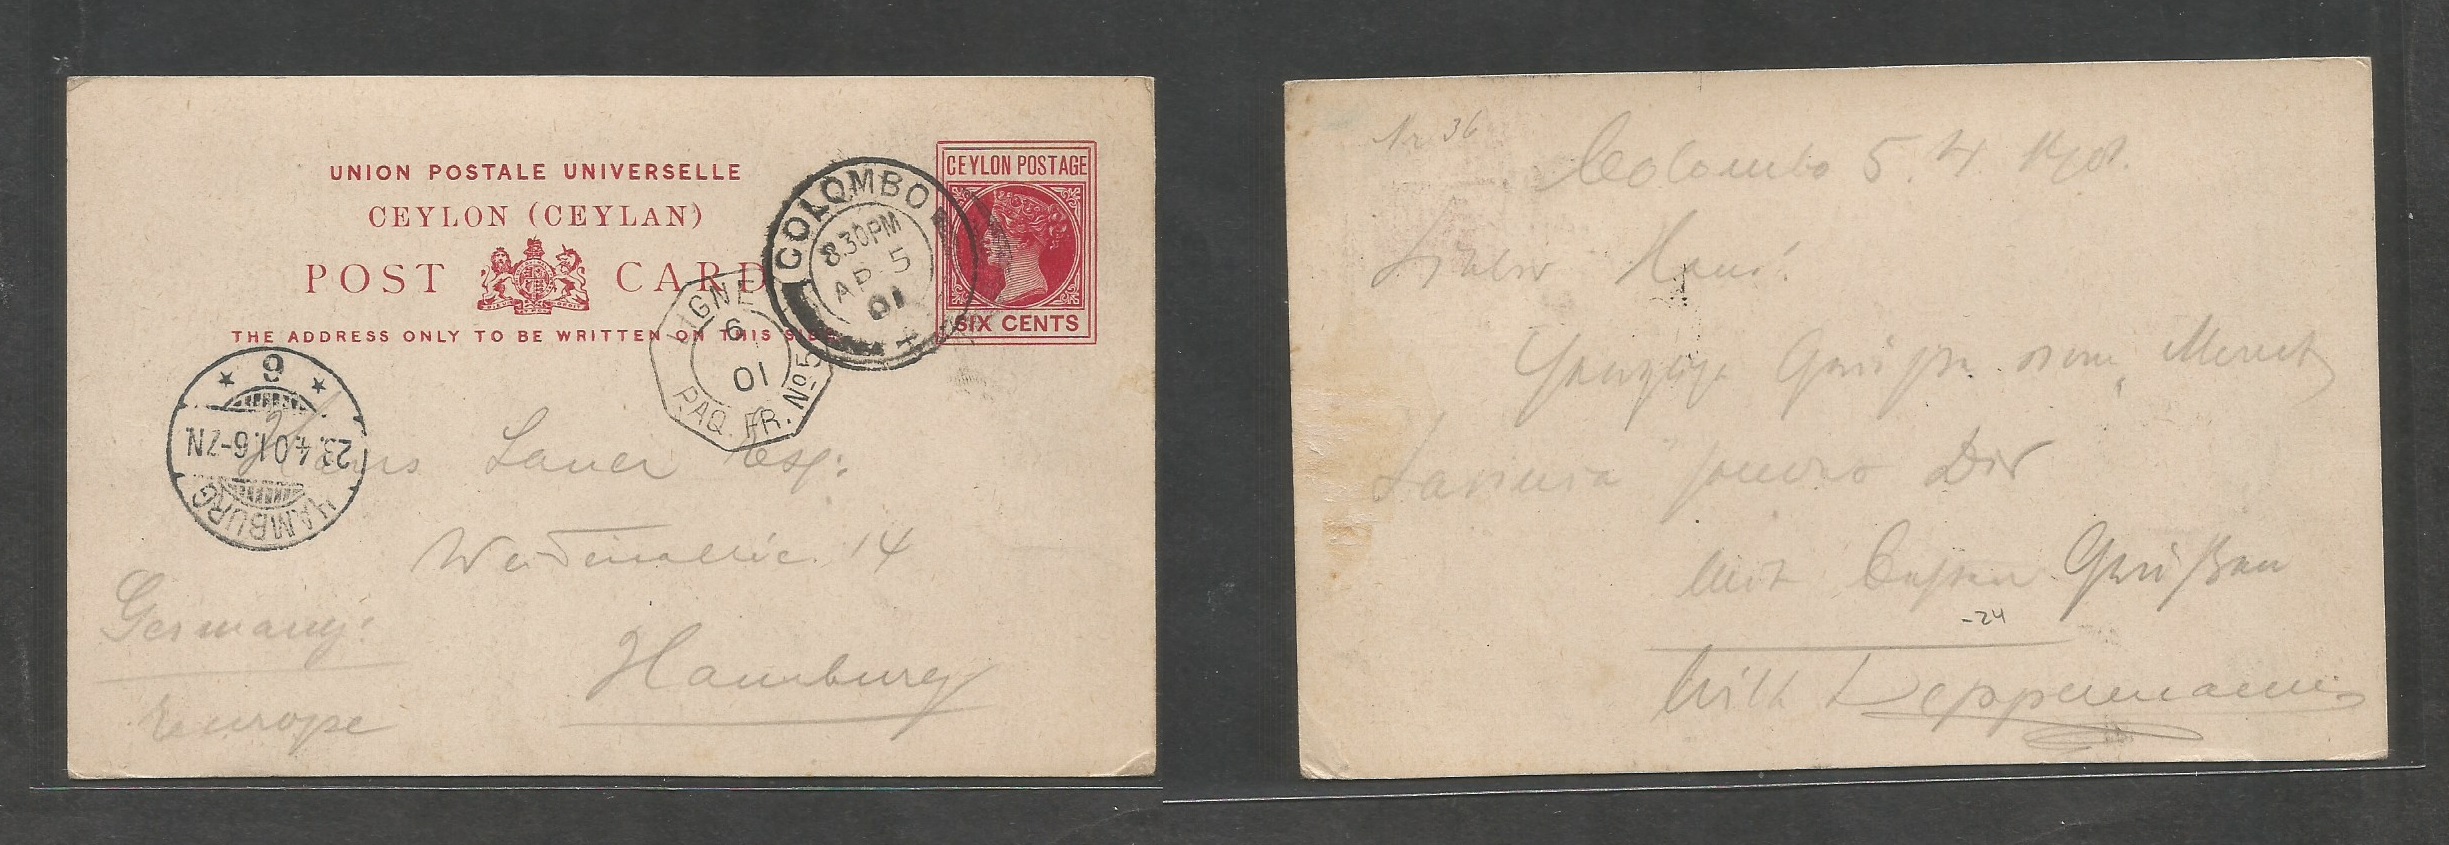 UNION POSTALE UNIVERSELLE
CEYLON (CEYLAN)
POST CARD
THE ADDRESS ONLY TO BE WRITTEN ON THIS SIDE
CEYLON POSTAGE
SIX CENTS
COLOMBO
8.30PM
AP 5
01
LIGNE N
6
01
PAQ. FR. No 5
HAMBURG
23.4.01.6-7N
* 9 *
Hans Lauer Esq:
14
Germany:
Hamburg
Europe
Nr 36
Colombo 5. 4. 1901.
Lieber Hans!
Grüsse vom "Mount
Lavinia sendet Dir
mit besten Grüßen
-24
Wilh Deppermann